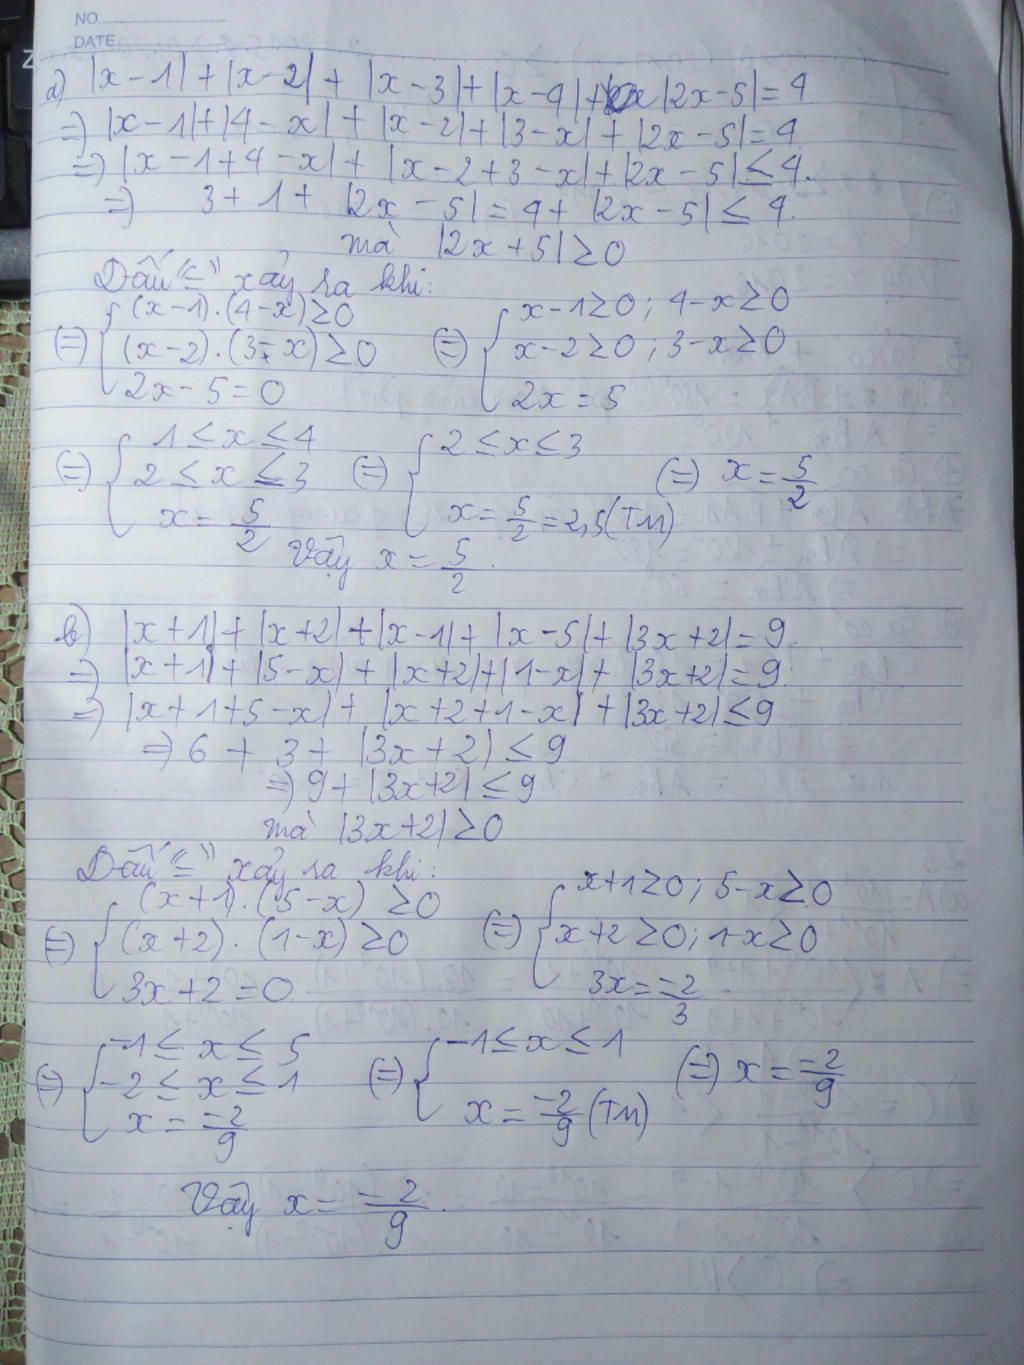 NO.
DATE
a) |x-1|+|x-2|+|x-3|+|x-4|+|2x-5|=4
=) |x-1|+|4-x|+|x-2|+|3-x|+|2x-5|=4
=) |x-1+4-x|+|x-2+3-x|+|2x-5|≤4.
=) 3+1+|2x-5|=4+|2x-5|≤4.
mà |2x+5|≥0
Dấu "=" xảy ra khi:
(=) { (x-1).(4-x)≥0 (=) { x-1≥0; 4-x≥0
(x-2).(3-x)≥0 x-2≥0; 3-x≥0
2x-5=0 2x=5
(=) { 1≤x≤4 (=) { 2≤x≤3 (=) x=5/2
2≤x≤3
x=5/2 x=5/2=2,5(TM)
Vậy x=5/2.
b) |x+1|+|x+2|+|x-1|+|x-5|+|3x+2|=9.
=) |x+1|+|5-x|+|x+2|+|1-x|+|3x+2|=9.
=) |x+1+5-x|+|x+2+1-x|+|3x+2|≤9
=) 6+3+|3x+2|≤9
=) 9+|3x+2|≤9
mà |3x+2|≥0
Dấu "=" xảy ra khi:
(=) { (x+1).(5-x)≥0 (=) { x+1≥0; 5-x≥0
(x+2).(1-x)≥0 x+2≥0; 1-x≥0
3x+2=0 3x=-2/3
(=) { -1≤x≤5 (=) { -1≤x≤1 (=) x=-2/9
-2≤x≤1
x=-2/9 x=-2/9(TM)
Vậy x=-2/9.